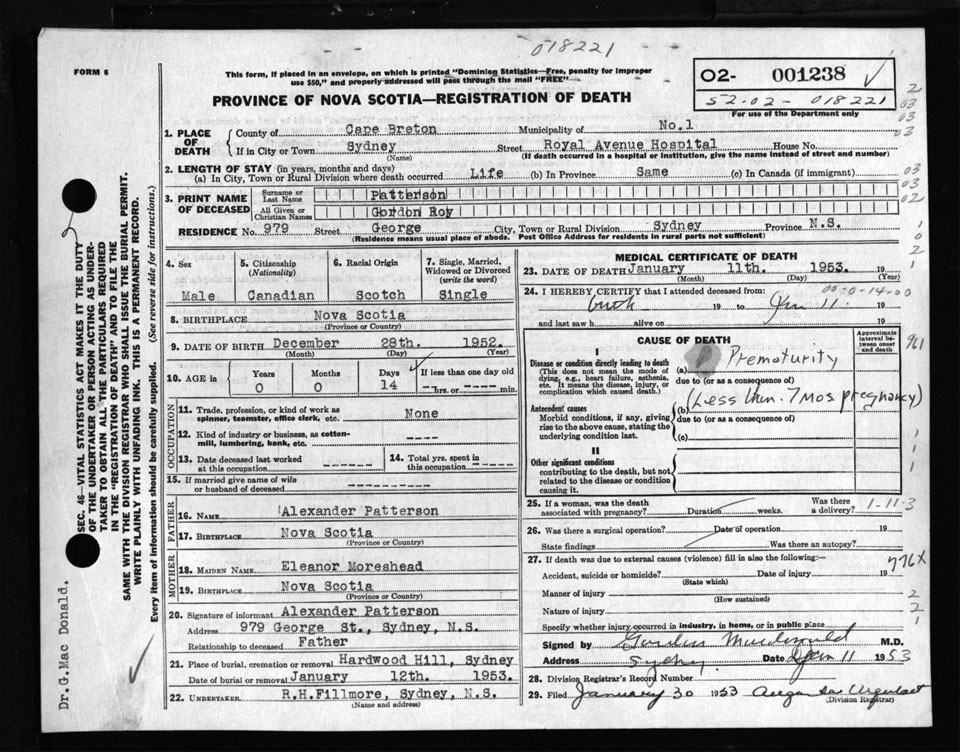 018221
FORM 6
This form, if placed in an envelope, on which is printed "Dominion Statistics—Free, penalty for improper
use $50," and properly addressed will pass through the mail "FREE"
PROVINCE OF NOVA SCOTIA—REGISTRATION OF DEATH
02- 001238 ✓
52-02- 018221
For use of the Department only
1. PLACE OF DEATH County of Cape Breton Municipality of No.1
If in City or Town Sydney Street Royal Avenue Hospital House No.
(Name) (If death occurred in a hospital or institution, give the name instead of street and number)
2. LENGTH OF STAY (in years, months and days)
(a) In City, Town or Rural Division where death occurred Life (b) In Province Same (c) In Canada (if immigrant)
3. PRINT NAME OF DECEASED Surname or Last Name Patterson
All Given or Christian Names Gordon Roy
RESIDENCE No. 979 Street George City, Town or Rural Division Sydney Province N.S.
(Residence means usual place of abode. Post Office Address for residents in rural parts not sufficient)
4. Sex Male
5. Citizenship (Nationality) Canadian
6. Racial Origin Scotch
7. Single, Married, Widowed or Divorced (write the word) Single
8. BIRTHPLACE Nova Scotia
(Province or Country)
9. DATE OF BIRTH December 28th. 1952.
(Month) (Day) (Year)
10. AGE in Years 0 Months 0 Days 14 If less than one day old
--hrs. or --min.
OCCUPATION
11. Trade, profession, or kind of work as spinner, teamster, office clerk, etc. None
12. Kind of industry or business, as cotton-mill, lumbering, bank, etc. ----
13. Date deceased last worked at this occupation ------
14. Total yrs. spent in this occupation -----
15. If married give name of wife or husband of deceased ------
FATHER
16. NAME Alexander Patterson
17. BIRTHPLACE Nova Scotia
(Province or Country)
MOTHER
18. MAIDEN NAME Eleanor Moreshead
19. BIRTHPLACE Nova Scotia
(Province or Country)
20. Signature of informant Alexander Patterson
Address 979 George St., Sydney, N.S.
Relationship to deceased Father
21. Place of burial, cremation or removal Hardwood Hill, Sydney
Date of burial or removal January 12th. 1953.
22. UNDERTAKER R.H.Fillmore, Sydney, N.S.
(Name and address)
MEDICAL CERTIFICATE OF DEATH
23. DATE OF DEATH January 11th. 1953. 19
(Month) (Day) (Year)
24. I HEREBY CERTIFY that I attended deceased from: 00-0-14-00
birth 19 to Jan 11. 19
and last saw h alive on 19
CAUSE OF DEATH
Approximate interval between onset and death
I
Disease or condition directly leading to death
(This does not mean the mode of dying, e.g., heart failure, asthenia, etc. It means the disease, injury, or complication which caused death.)
(a) Prematurity
due to (or as a consequence of)
Antecedent causes
Morbid conditions, if any, giving rise to the above cause, stating the underlying condition last.
(b) (Less then. 7 mos pregnancy)
due to (or as a consequence of)
(c)
II
Other significant conditions
contributing to the death, but not related to the disease or condition causing it.
25. If a woman, was the death associated with pregnancy? Duration weeks. Was there a delivery? 1-11-3
26. Was there a surgical operation? Date of operation 19
State findings Was there an autopsy?
27. If death was due to external causes (violence) fill in also the following:—
Accident, suicide or homicide? Date of injury 19
(State which)
776X
Manner of injury
(How sustained)
Nature of injury
Specify whether injury occurred in industry, in home, or in public place
Signed by Gordon Macdonald M.D.
Address Sydney. Date Jan 11 1953
28. Division Registrar's Record Number
29. Filed January 30 1953
(Division Registrar)
SEC. 46—VITAL STATISTICS ACT MAKES IT THE DUTY
OF THE UNDERTAKER OR PERSON ACTING AS UNDER-
TAKER TO OBTAIN ALL THE PARTICULARS REQUIRED
IN THE "REGISTRATION OF DEATH" AND TO FILE THE
SAME WITH THE DIVISION REGISTRAR WHO SHALL ISSUE THE BURIAL PERMIT.
WRITE PLAINLY WITH UNFADING INK. THIS IS A PERMANENT RECORD.
Every item of information should be carefully supplied. (See reverse side for instructions.)
Dr.G.Mac Donald.
2
03
03
03
03
03
02
1
0
2
961
1
1
1
2
2
1